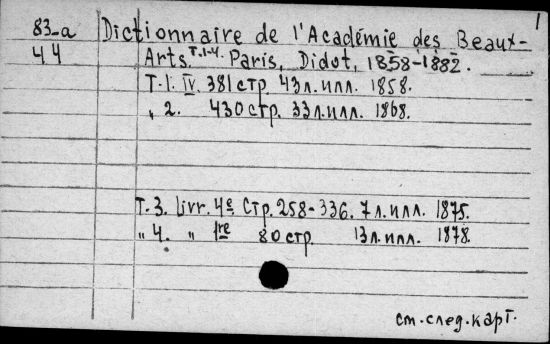 1
83-а Dictionnaire de l'Académie des Beaux-
44 Arts. T.1-4. Paris, Didot, 1858-1882.
Т.1. IV. 381 стр. 43 л. илл. 1858.
„ 2. 430 стр. 33 л. илл. 1868.
Т.3. Livr. 4e Стр. 258-336. 7 л. илл. 1875.
„ 4. „ 1re 80 стр. 13 л. илл. 1878.
см. след. карт.